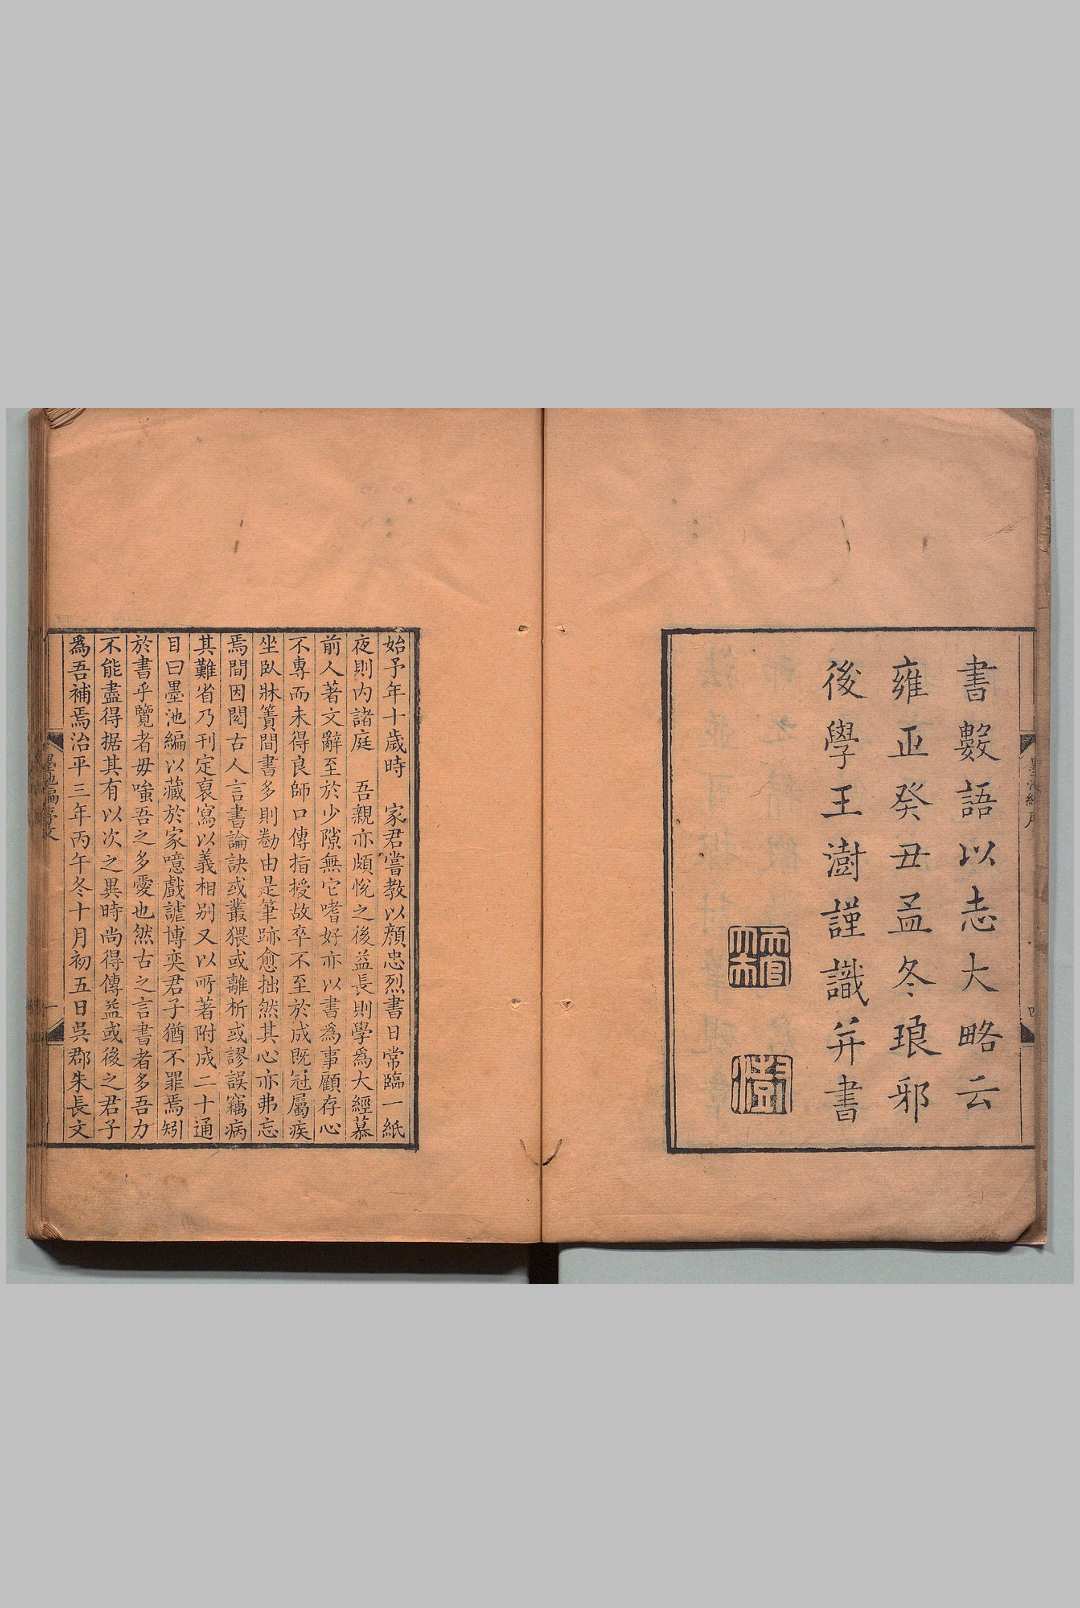 書數語以志大略云
雍正癸丑孟冬琅邪
後學王澍謹識并書
始予年十歲時　家君嘗教以顏忠烈書日常臨一紙
夜則內諸庭　吾親亦頗悅之後益長則學爲大經慕
前人著文辭至於少隙無它嗜好亦以書爲事顧存心
不專而未得良師口傳指授故卒不至於成既冠屬疾
坐臥牀簀間書多則勌由是筆跡愈拙然其心亦弗忘
焉間因閱古人言書論訣或叢猥或離析或謬誤竊病
其難省乃刊定裒寫以義相別又以所著附成二十通
目曰墨池編以藏於家噫戲謔博奕君子猶不罪焉矧
於書乎覽者毋嗤吾之多愛也然古之言書者多吾力
不能盡得据其有以次之異時尚得傳益或後之君子
爲吾補焉治平三年丙午冬十月初五日吳郡朱長文